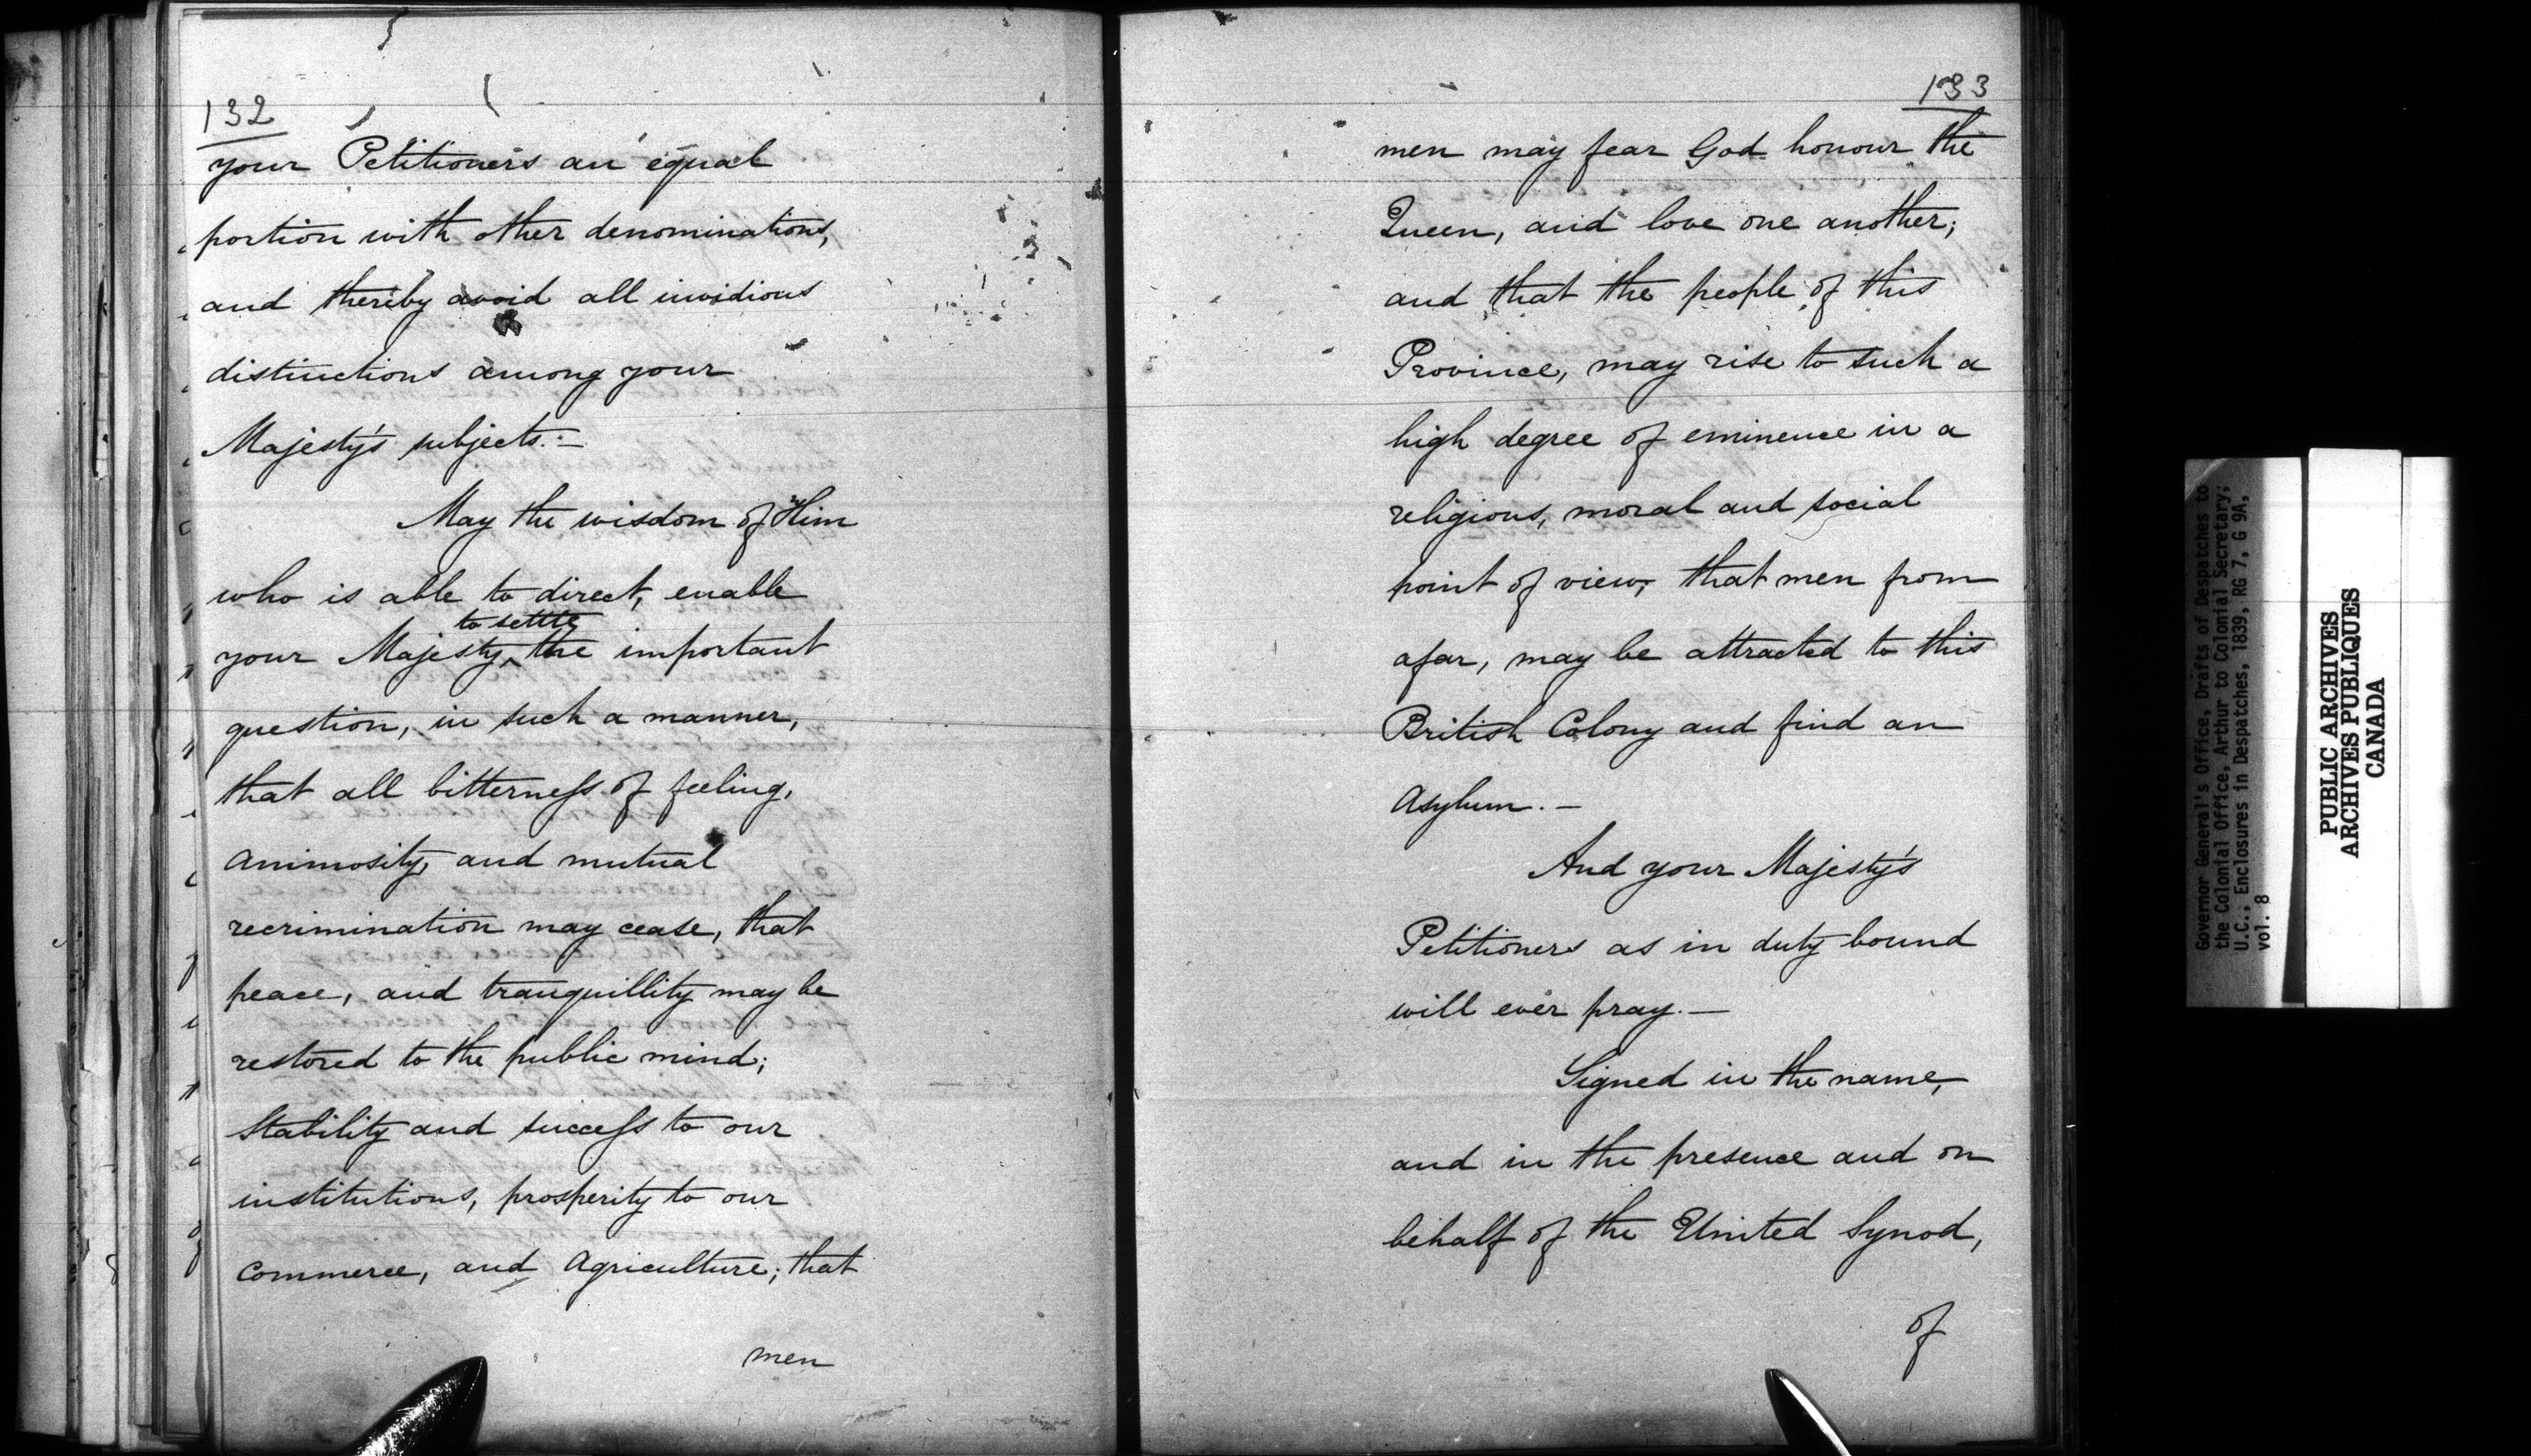 132
your Petitioners an equal
portion with other denominations,
and thereby avoid all invidious
distinctions among your
Majesty's subjects.—
May the wisdom of Him
who is able to direct, enable
to settle
your Majesty, the important
question, in such a manner,
that all bitterness of feeling,
animosity, and mutual
recrimination may cease, that
peace, and tranquillity may be
restored to the public mind;
Stability and success to our
institutions, prosperity to our
Commerce, and Agriculture; that
men
133
men may fear God honour the
Queen, and love one another;
and that the people of this
Province, may rise to such a
high degree of eminence in a
religious, moral and social
point of view, that men from
afar, may be attracted to this
British Colony and find an
Asylum.—
And your Majesty's
Petitioners as in duty bound
will ever pray.—
Signed in the name,
and in the presence and on
behalf of the United Synod,
of
Governor General's Office, Drafts of Despatches to
the Colonial Office, Arthur to Colonial Secretary;
U.C., Enclosures in Despatches, 1839, RG 7, G 9A,
vol. 8
PUBLIC ARCHIVES
ARCHIVES PUBLIQUES
CANADA